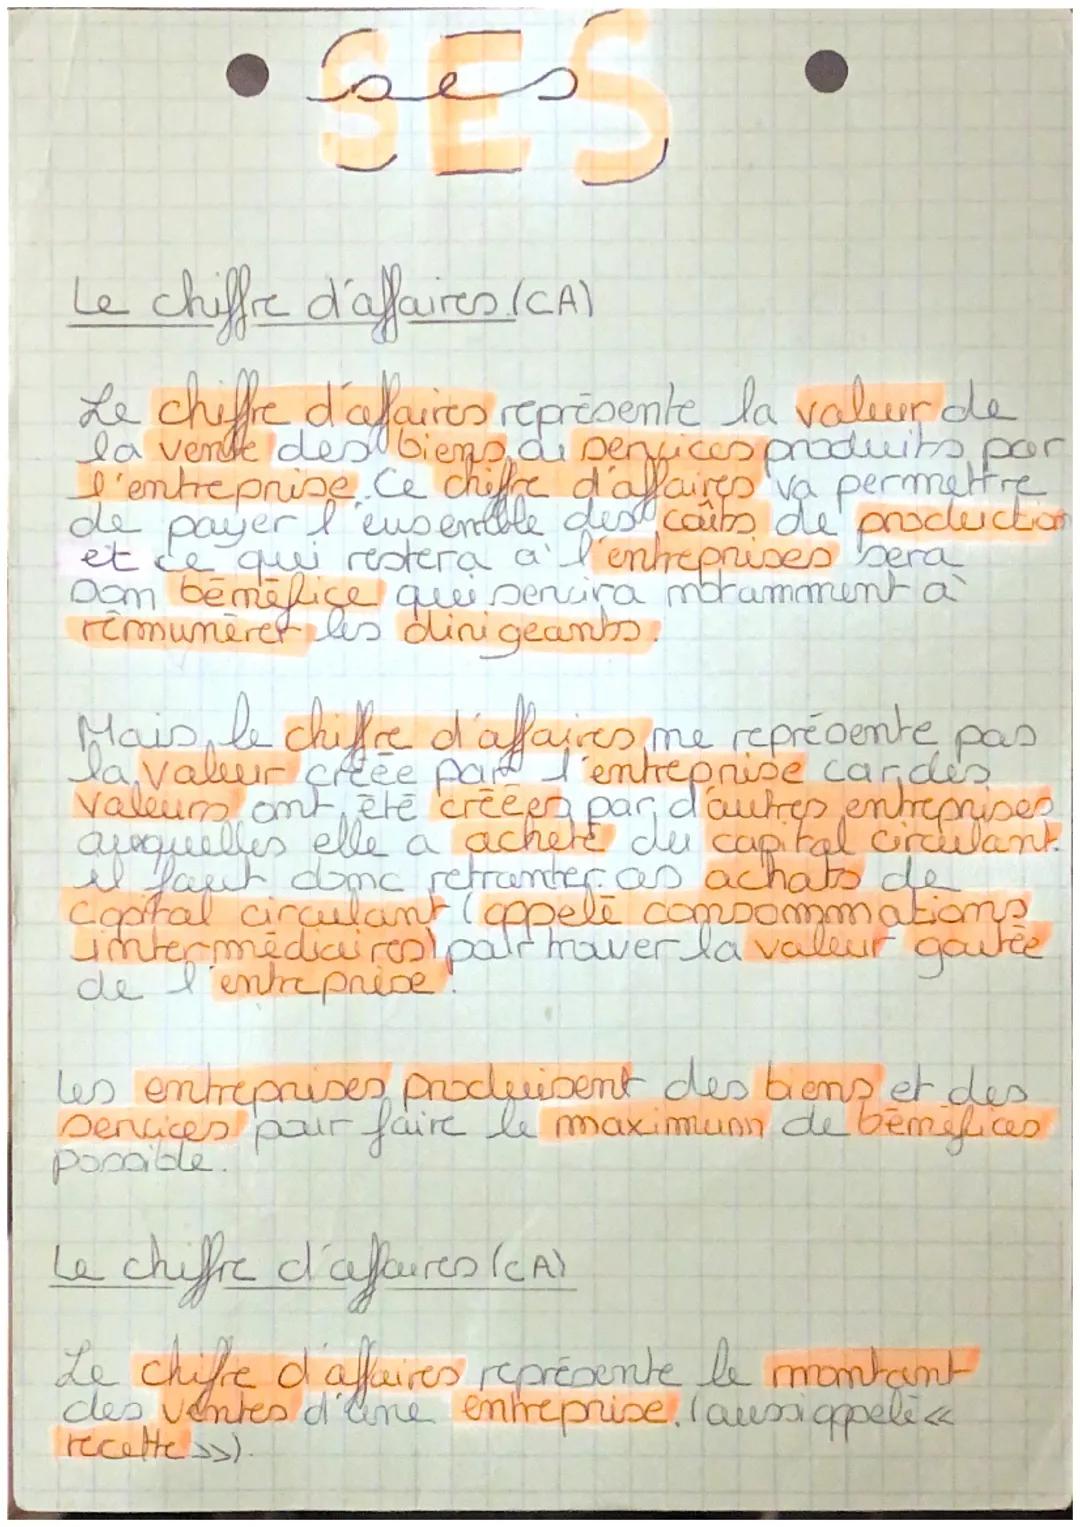 SES
ses
Le chiffre d'affaires (CA)
Le chiffre d'affaires représente la valeur de
la vente des biens de services produits par
l'entreprise. Ce chiffre d'affaires va permettre
de payer l'ensemble des coûts de production
et ce qui restera à l'entreprises sera
son bénéfice qui servira notamment à
rémunérer les dirigeants.
Mais, le chiffre d'affaires ne représente pas
la valeur créée par l'entreprise car des
valeurs ont été créées par d'autres entreprises
auxquelles elle a acheté du capital circulant.
il faut donc retrancher ces achats de
capital circulant (appelé consommations
intermédiaires) pour trouver la valeur
de l'entreprise.
Les entreprises produisent des biens et des
services pour faire le maximum de bénéfices
possible.
Le chiffre d'affaires (CA)
Le chiffre d'affaires représente le montant
des ventes d'une entreprise. (aussi appelé «
recette »).